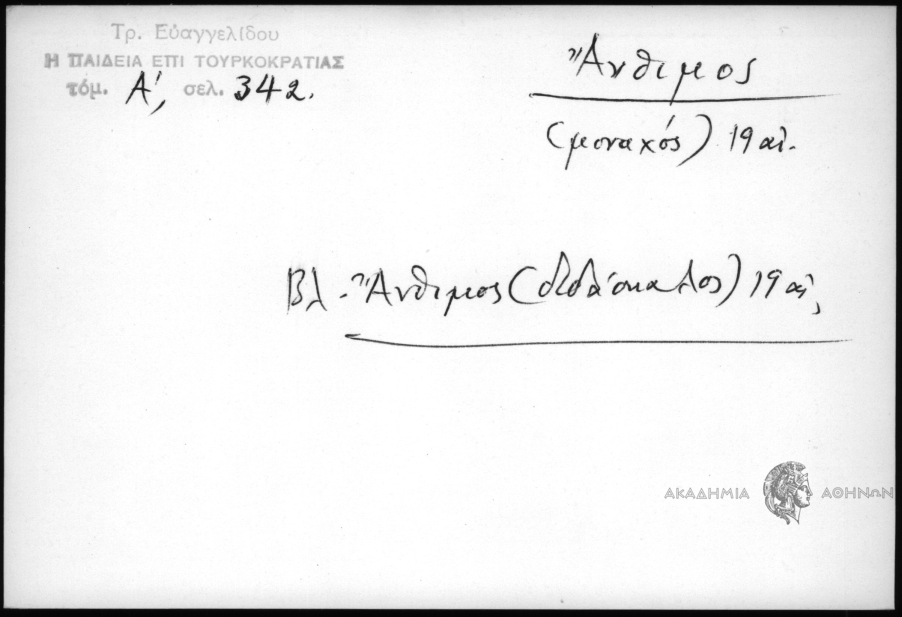 Τρ. Εὐαγγελίδου
Η ΠΑΙΔΕΙΑ ΕΠΙ ΤΟΥΡΚΟΚΡΑΤΙΑΣ
τόμ. Α', σελ. 342.
Ἄνθιμος
(μοναχός) 19 αἰ.
Βλ. Ἄνθιμος (διδάσκαλος) 19 αἰ.
ΑΚΑΔΗΜΙΑ ΑΘΗΝΩΝ